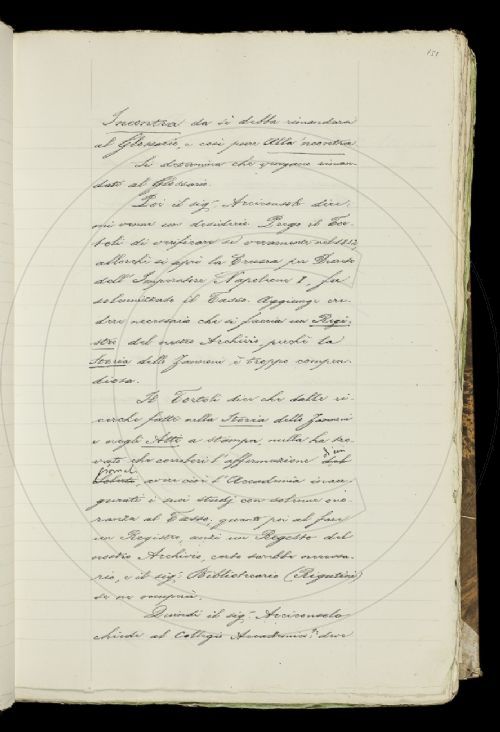 151
Incontra da si debba rimandare
al Glossario, e così pure Alla 'ncontra
Si determina che vengano riman-
dati al Glossario.
Poi il sig.r Arciconsolo dice:
mi venne un desiderio. Prego il Tor-
toli di verificare se veramente nel 1812,
allorchè si aprì la Crusca per Decreto
dell'Imperatore Napoleone I, fu
solennizzato il Tasso. Aggiunge cre-
dere necessario che si faccia un Regi-
stro del nostro Archivio, perchè la
Storia dello Zannoni è troppo compen-
diosa.
Il Tortoli dice che dalle ri-
cerche fatte nella Storia dello Zannoni
e negli Atti a stampa, nulla ha tro-
vato che corrobori l'affermazione d'un
giornale, avere cioè l'Accademia inau-
gurati i suoi studj con solenne ono-
ranza al Tasso; quanto poi al fare
un Registro, anzi un Regesto del
nostro Archivio, certo sarebbe necessa-
rio, e il sig.r Bibliotecario (Rigutini)
se ne occuperà.
Quindi il sig.r Arciconsolo
chiede al Collegio Accademico: deve